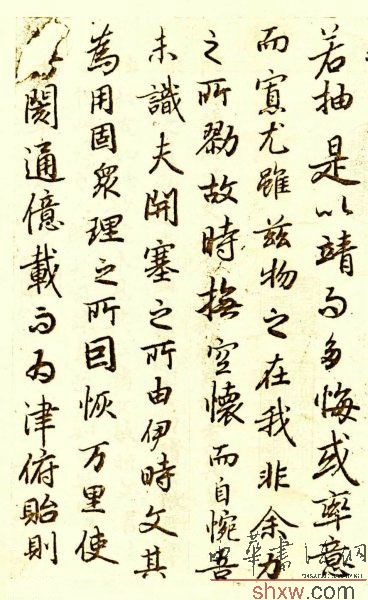 若抽是以靖而多悔或率意
而寡尤雖茲物之在我非余力
之所勠故時撫空懷而自惋吾
未識夫開塞之所由伊時文其
為用固衆理之所因恢万里使
閡通億載而為津俯貽則
shxw.com